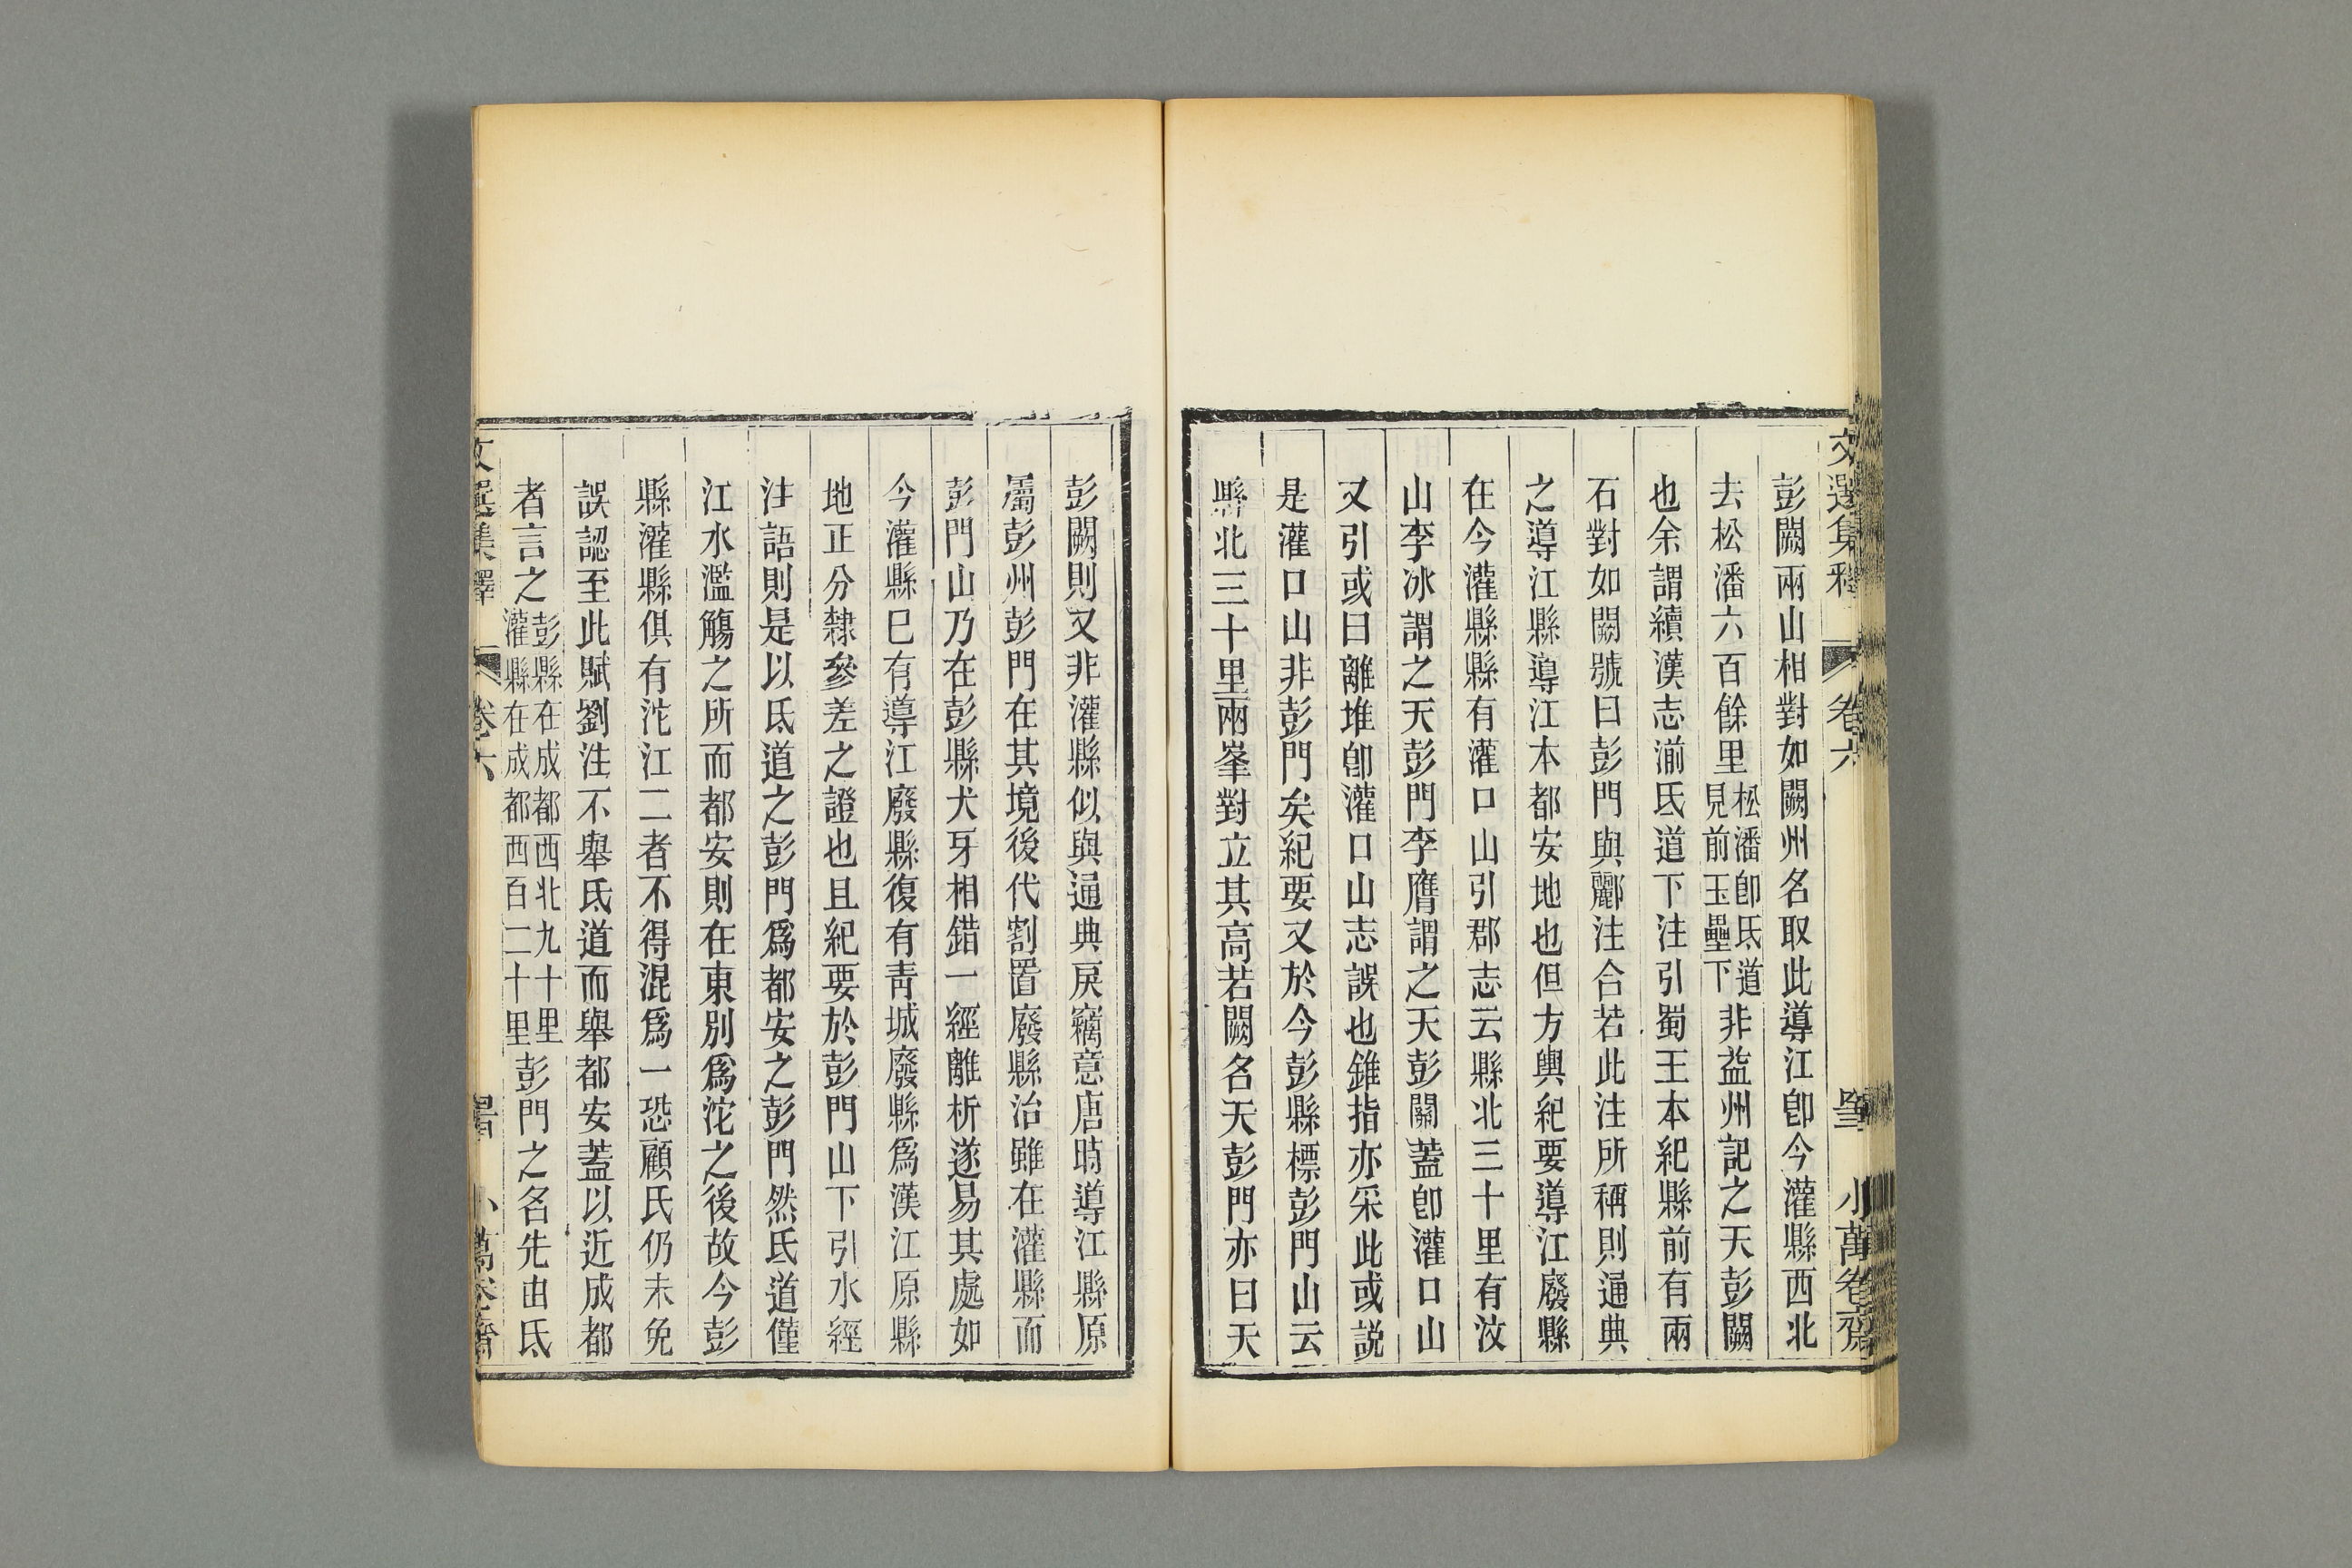 文選集釋 卷六 小萬卷齋
彭闕兩山相對如闕州名取此導江卽今灌縣西北
去松潘六百餘里松潘卽氐道見前玉壘下非益州記之天彭闕
也余謂續漢志湔氐道下注引蜀王本紀縣前有兩
石對如闕號曰彭門與酈注合若此注所稱則通典
之導江縣導江本都安地也但方輿紀要導江廢縣
在今灌縣縣有灌口山引郡志云縣北三十里有汶
山李冰謂之天彭門李膺謂之天彭關蓋卽灌口山
又引或曰離堆卽灌口山志誤也錐指亦采此或説
是灌口山非彭門矣紀要又於今彭縣標彭門山云
縣北三十里兩峯對立其高若闕名天彭門亦曰天
彭闕則又非灌縣似與通典戾竊意唐時導江縣原
屬彭州彭門在其境後代割置廢縣治雖在灌縣而
彭門山乃在彭縣犬牙相錯一經離析遂易其處如
今灌縣巳有導江廢縣復有靑城廢縣爲漢江原縣
地正分隸參差之證也且紀要於彭門山下引水經
注語則是以氐道之彭門爲都安之彭門然氐道僅
江水濫觴之所而都安則在東別爲沱之後故今彭
縣灌縣俱有沱江二者不得混爲一恐顧氏仍未免
誤認至此賦劉注不舉氐道而舉都安蓋以近成都
者言之彭縣在成都西北九十里灌縣在成都西百二十里彭門之名先由氐
文選集釋 卷六 小萬卷齋